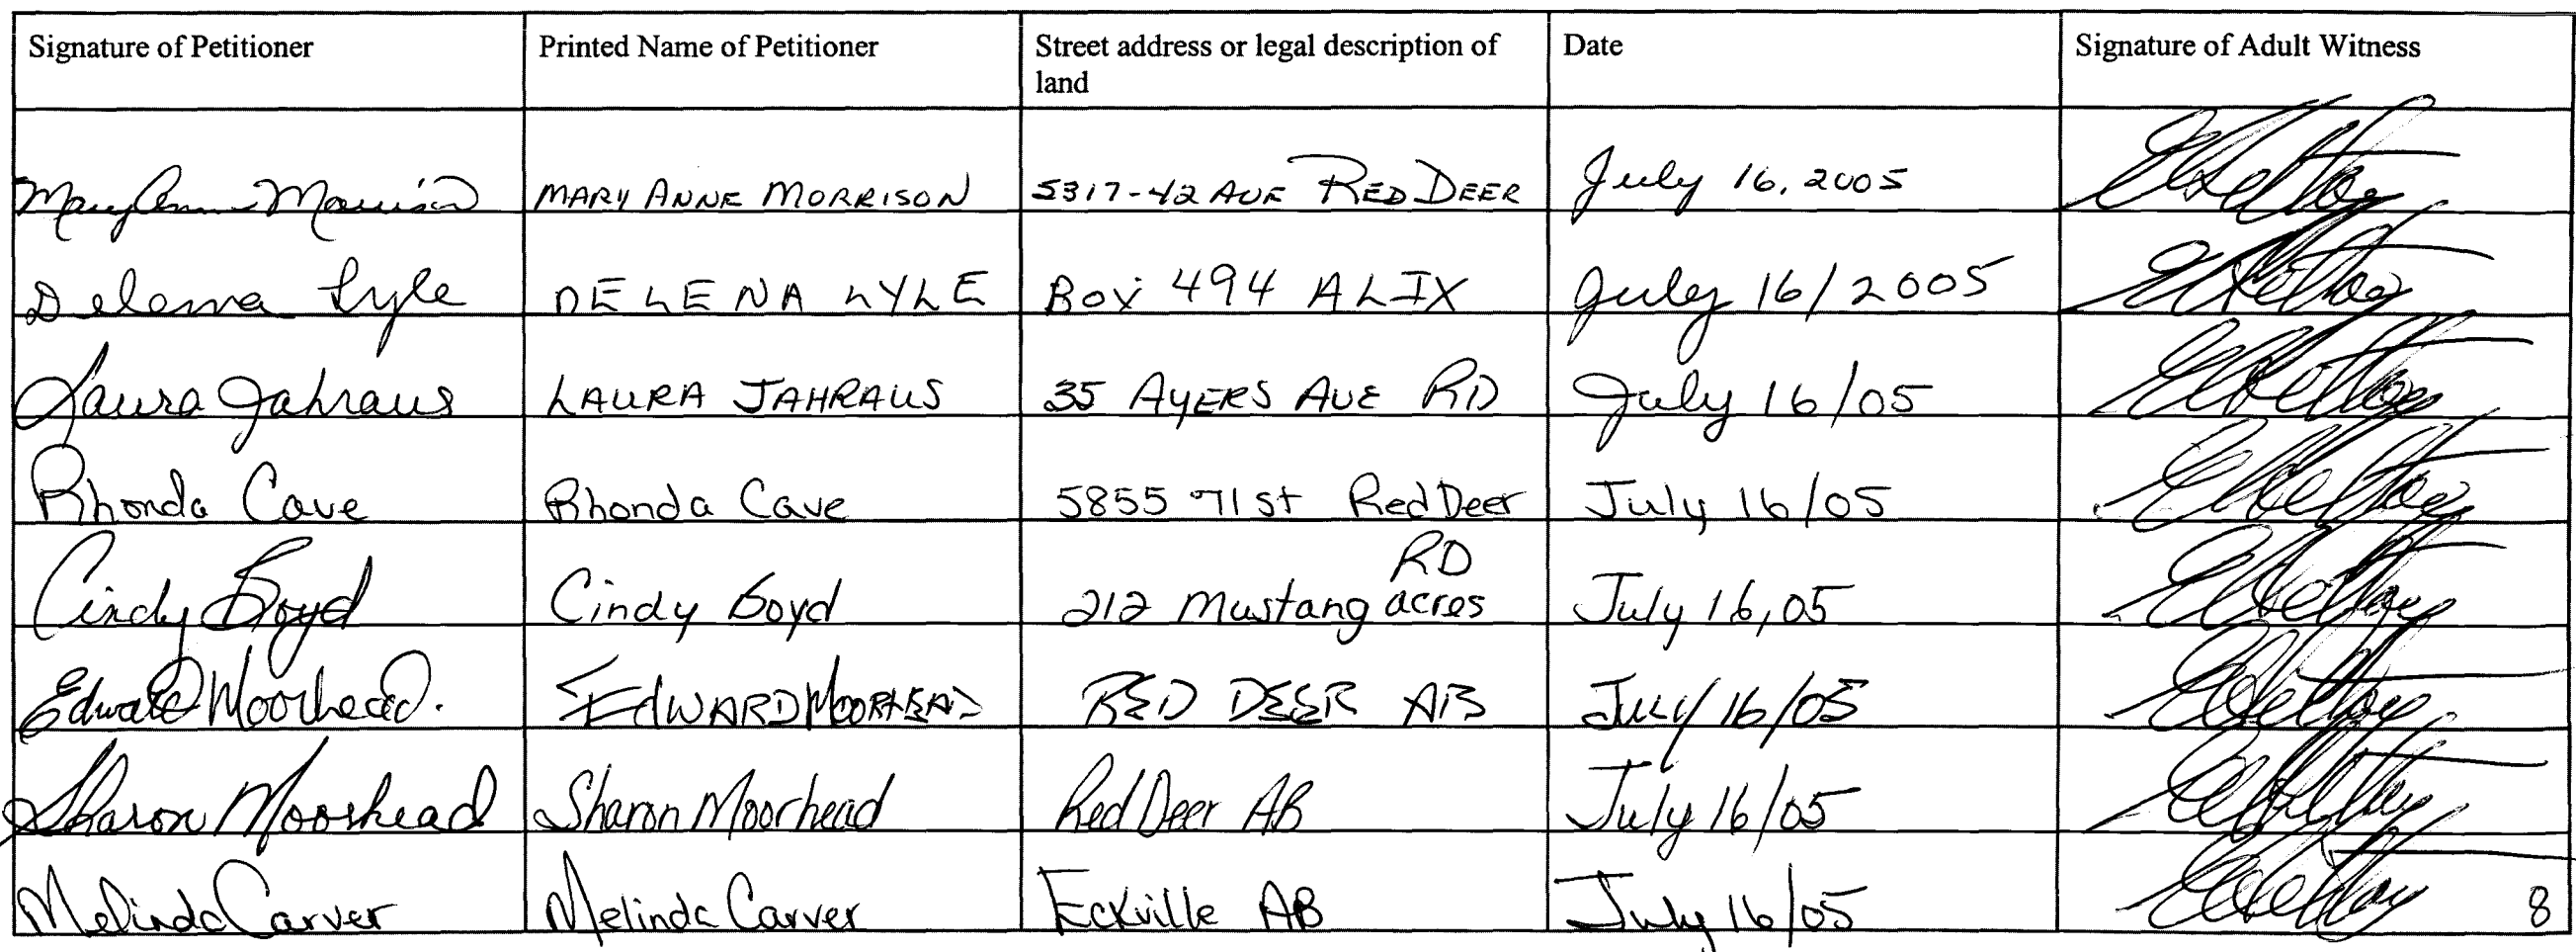 Signature of Petitioner Printed Name of Petitioner Street address or legal description of land Date Signature of Adult Witness
Mary Anne Morrison MARY ANNE MORRISON 5317-42 AVE RED DEER July 16, 2005
Delena Lyle DELENA LYLE Box 494 ALIX July 16/2005
Laura Jahraus LAURA JAHRAUS 35 AYERS AVE RD July 16/05
Rhonda Cave Rhonda Cave 5855 71 st Red Deer July 16/05
Cindy Boyd Cindy Boyd 212 Mustang acres RD July 16, 05
Edward Moorhead. EDWARD MOORHEAD RED DEER AB JULY 16/05
Sharon Moorhead Sharon Moorhead Red Deer AB July 16/05
Melinda Carver Melinda Carver Eckville AB July 16/05
8